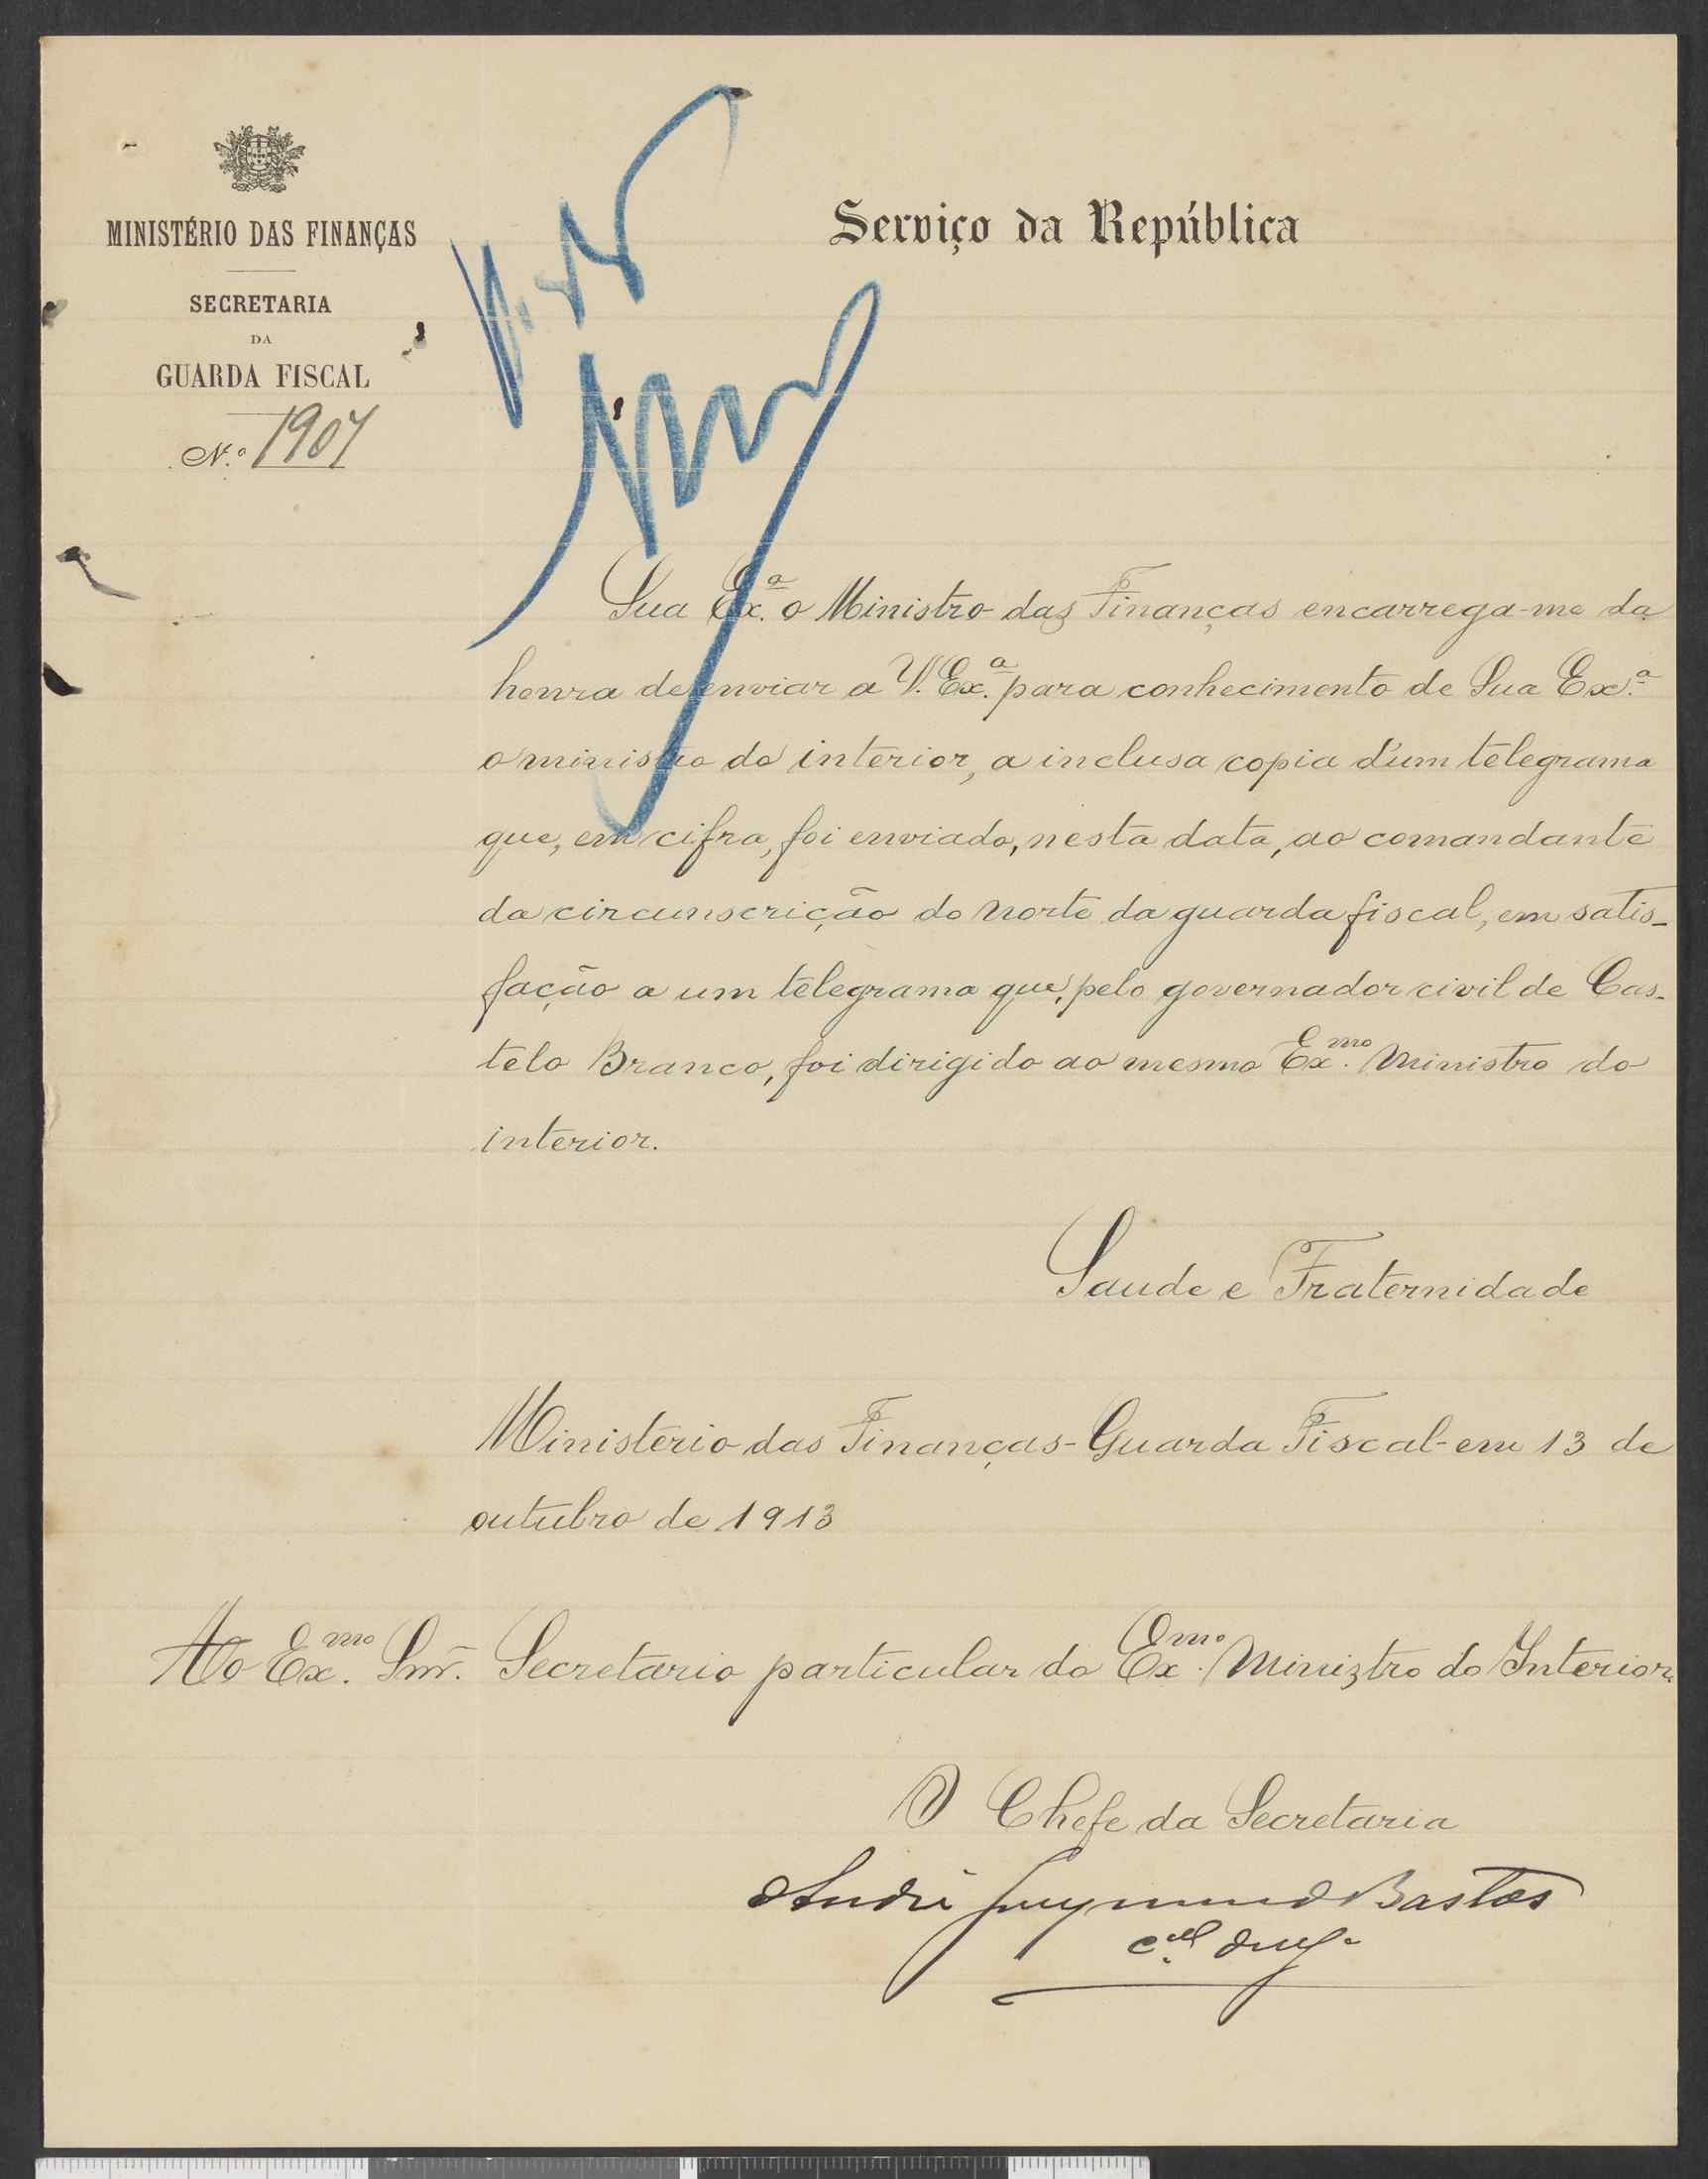 MINISTÉRIO DAS FINANÇAS
SECRETARIA
DA
GUARDA FISCAL
N.º 1907
Serviço da República
Sua Ex.ª o Ministro das Finanças encarrega-me da
honra de enviar a V. Ex.ª para conhecimento de Sua Ex.ª
o ministro do interior, a inclusa copia d'um telegrama
que, em cifra, foi enviado, nesta data, ao comandante
da circunscrição do norte da guarda fiscal, em satis-
fação a um telegrama que, pelo governador civil de Cas-
telo Branco, foi dirigido ao mesmo Ex.mo Ministro do
interior.
Saude e Fraternidade
Ministerio das Finanças - Guarda Fiscal - em 13 de
outubro de 1913
Ao Ex.mo Snr. Secretario particular do Ex.mo Ministro do Interior.
O Chefe da Secretaria
André Bastos